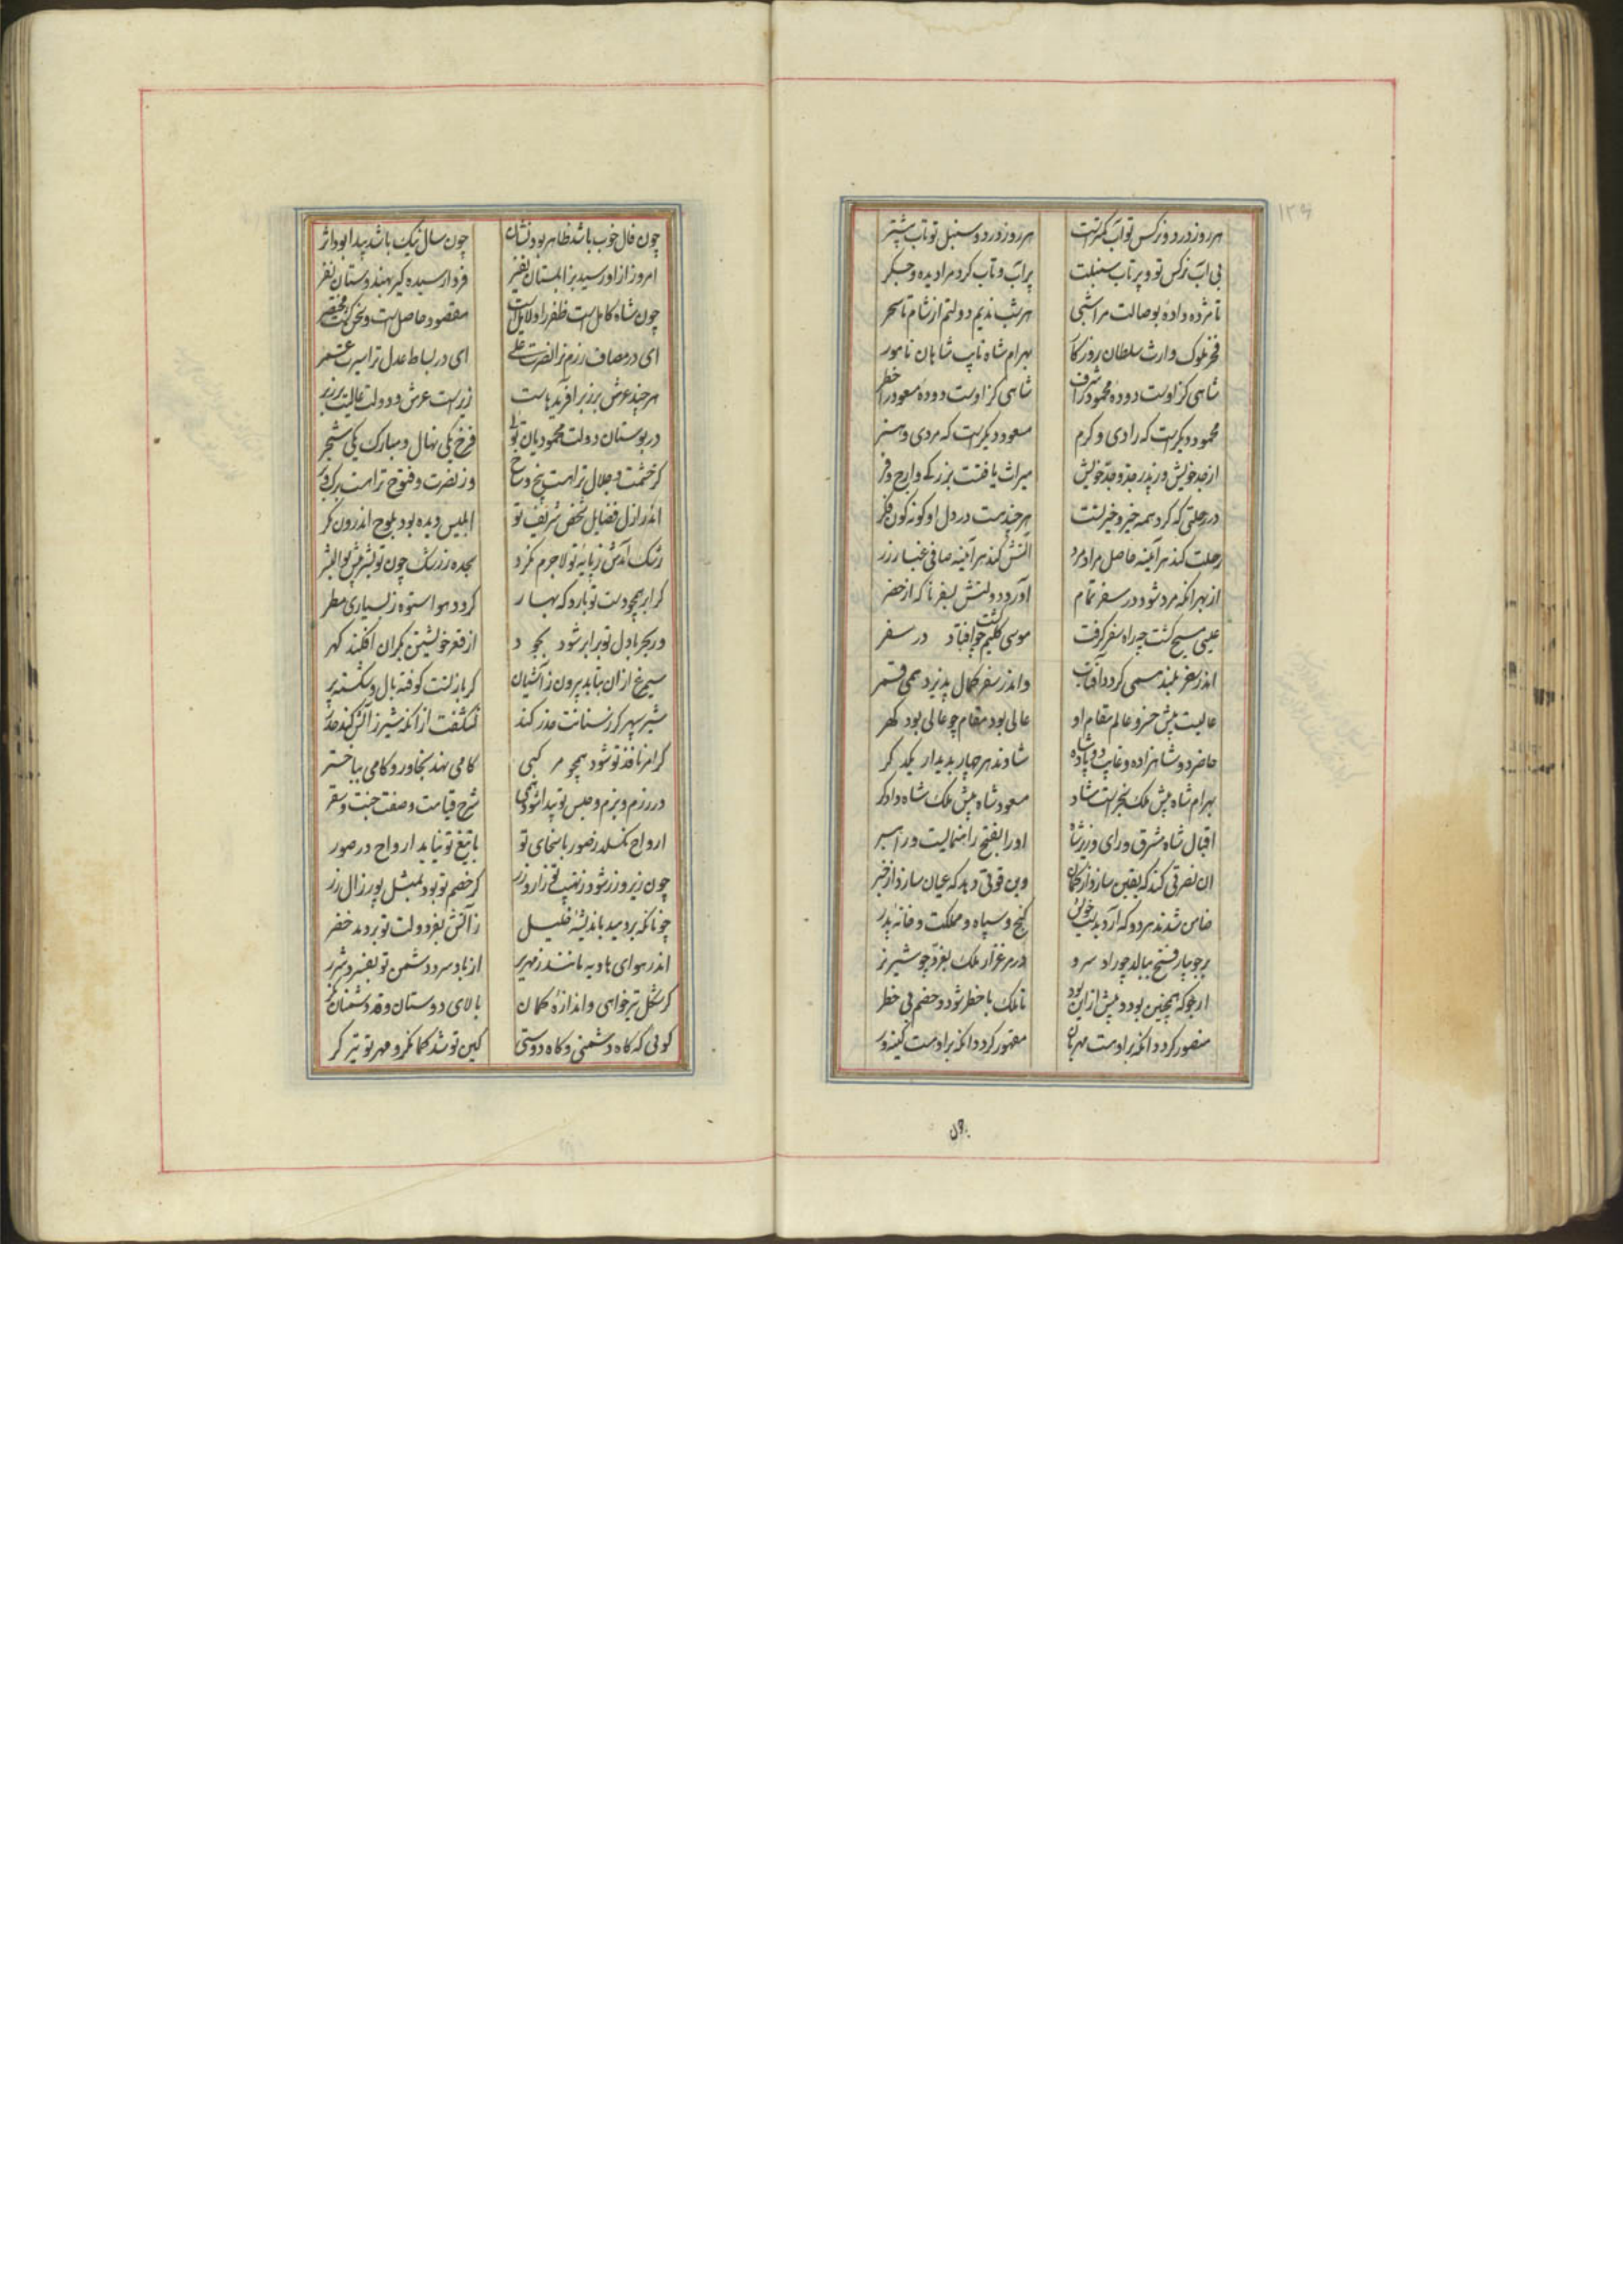 هر روز درد و نرکس تو آب کمترست هر روز درد و سنبل تو تاب بیشتر
بی آب نرکس تو و پر تاب سنبلت پر آب و تاب کرد مرا دیده و جکر
تا مژده داده بوصالت مرا شبی هر شب ندیم دولتم از شام تا سحر
فخر ملوک وارث سلطان روزکار بهرام شاه نایب شاهان نامور
شاهی کز اوست دوده محمود را شرف شاهی کز اوست دوده مسعود را خطر
محمود دیکرست که رادی و کرم مسعود دیکرست که مردی و هنر
از جد خویش وز پدر جد و جد خویش میراث یافتست بزرکی و ارج و فر
در رحلتی که کرد همه خیر و خیر تست هر چند هست در دل او کونه کون فکر
رحلت کند هر آینه حاصل مراد مرد آتش کند هر آینه صافی عیار زر
از بهر آنکه مرد شود در سفر تمام آورد دولتش بسفر ناکه از حضر
عیسی مسیح کشت چو راه سفر کرفت موسی کلیم کشت چو افتاد در سفر
اندر سفر بلند همی کردد آفتاب واندر سفر کمال پذیرد همی قمر
عالیست پیش خسرو عالم مقام او عالی بود مقام چو عالی بود کهر
حاضر دو شاهزاده و غایب دو پادشاه شادند هر چهار بدیدار یکدکر
بهرام شاه پیش ملک سنجرست شاد مسعود شاه پیش ملک شاه دادکر
اقبال شاه مشرق و رای وزیر شاه او را بفتح راهنمایست و راهبر
آن نصرتی کند که یقین سازد از کمان وین قوتی دهد که عیان سازد از خبر
ضامن شدند هر دو که آرد بدست خویش کنج و سپاه و مملکت و خانه پدر
بر جویبار فتح ببالد چو راد سرو در مرغزار ملک بغرد چو شیر نر
ار بلوکه همچنین بود و پیش ازین بود تا ملک با خطر شود و خصم بی خطر
منصور کردد آنکه بر اوست مهربان مقهور کردد آنکه بر اوست کینه ور
چون فال خوب باشد ظاهر بود نشان چون سال نیک باشد پیدا بود اثر
امروز ازو رسید بزابلستان نفیر فردا رسیده کیر بهندوستان نفر
چون شاه کاملست ظفر را دلایل است مقصود حاصلست و سخن کشت مختصر
ای در مصاف رزم ترا نصرت علی ای در بساط عدل ترا سیرت عمر
هر چند عرش برز بر آفریدهاست زیرست عرش و دولت عالیت بر زبر
در بوستان دولت محمودیان توئی فرخ یکی نهال و مبارک یکی شجر
کز حشمت و جلال تراست بیخ و شاخ وز نصرت و فتوح تراست برک و بر
اندر ازل فضایل شخص شریف تو ابلیس دیده بود بلوح اندرون مکر
رشک آمدش ز پایه تو لاجرم نکرد سجده ز رشک چون تو بشر پیش بوالبشر
کر ابر همچو دست تو بارد که بهار کردد هوا ستوه ز بسیاری مطر
ور بحر با دل تو برابر شود بجود از قعر خویشتن بکران افکند کهر
سیمرغ ازان نیاید بیرون ز آشیان کز باز تست کوفته بال و شکسته پر
شیر سپهر کر ز سنانت حذر کند نشکفت از آنکه شیر ز آتش کند حذر
کر امر نافذ تو شود همچو مرکبی کامی نهد بخاور و کامی بباختر
در رزم و بزم و مجلس تو پیدا شود همی شرح قیامت و صفت جنت و سقر
ارواح نکسلد ز صور با سخای تو با تیغ تو نیاید ارواح در صور
چون زیر و زر شود ز نهیب تو زار و زرد کر خصم تو بود بمثل پور زال زر
چونانکه بردمید باندیشه خلیل ز آتش بفر دولت تو بردمد خضر
اندر هوای هاویه مانند زمهریر از باد سرد دشمن تو بفسرد شرر
کر شکل تیر خواهی و اندازه کمان بالای دوستان و قد دشمنان نکر
کوئی که کاه دشمنی و کاه دوستی کین تو شد کمانکر و مهر تو تیرکر